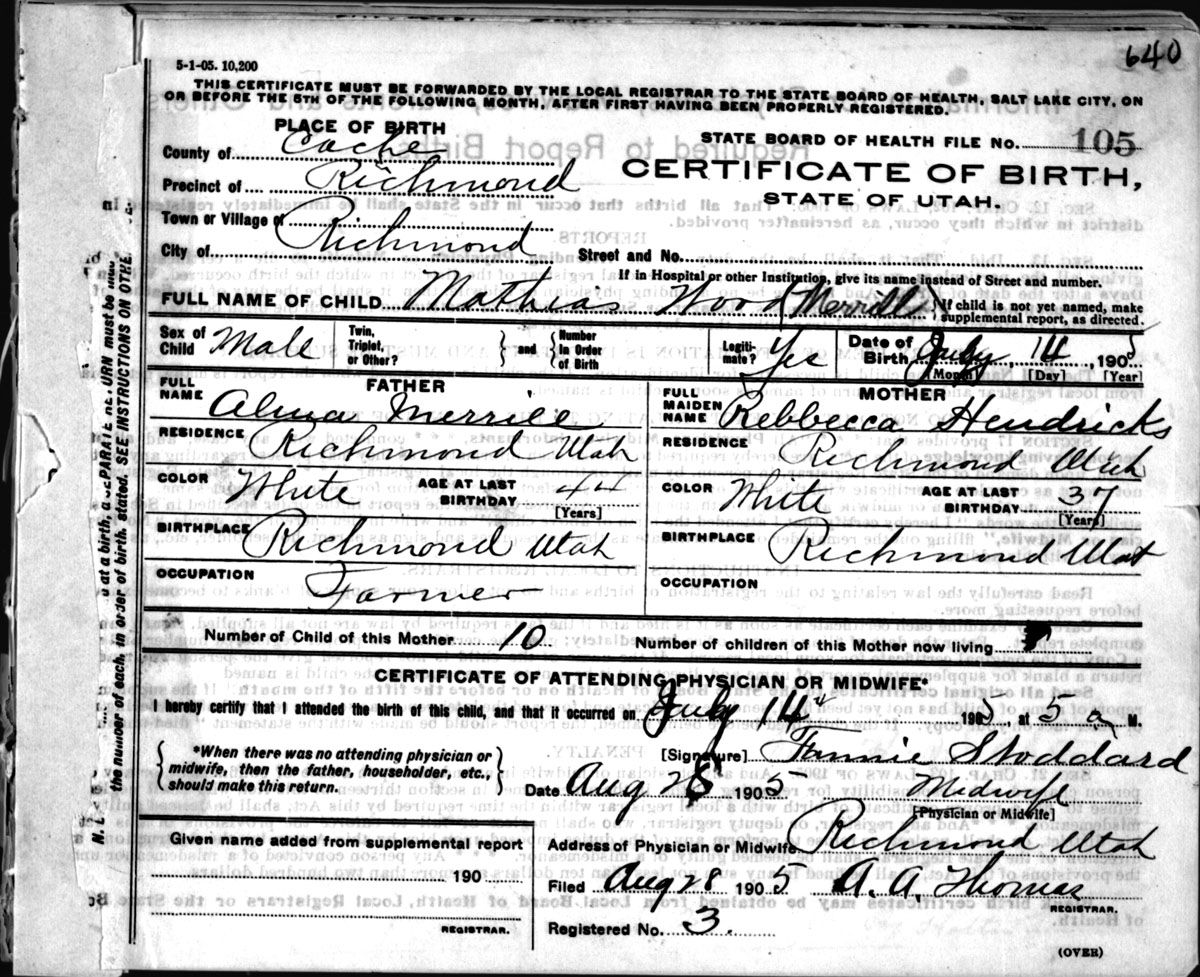 640
5-1-05. 10,200
THIS CERTIFICATE MUST BE FORWARDED BY THE LOCAL REGISTRAR TO THE STATE BOARD OF HEALTH, SALT LAKE CITY, ON
OR BEFORE THE 5TH OF THE FOLLOWING MONTH, AFTER FIRST HAVING BEEN PROPERLY REGISTERED.
PLACE OF BIRTH
STATE BOARD OF HEALTH FILE NO. 105
County of Cache
CERTIFICATE OF BIRTH,
Precinct of Richmond
STATE OF UTAH.
Town or Village of Richmond
City of
Street and No.
If in Hospital or other Institution, give its name instead of Street and number.
FULL NAME OF CHILD Mathias Wood (Merrill)
If child is not yet named, make
supplemental report, as directed.
Sex of Child Male
Twin, Triplet, or Other?
and
Number In Order of Birth
Legitimate? Yes
Date of Birth July 14, 1905
[Month] [Day] [Year]
FATHER
FULL NAME Alma Merrill
RESIDENCE Richmond Utah
COLOR White AGE AT LAST BIRTHDAY 44
[Years]
BIRTHPLACE Richmond Utah
OCCUPATION Farmer
MOTHER
FULL MAIDEN NAME Rebbecca Hendricks
RESIDENCE Richmond Utah
COLOR White AGE AT LAST BIRTHDAY 37
[Years]
BIRTHPLACE Richmond Utah
OCCUPATION
Number of Child of this Mother 10
Number of children of this Mother now living
CERTIFICATE OF ATTENDING PHYSICIAN OR MIDWIFE*
I hereby certify that I attended the birth of this child, and that it occurred on July 14th 1905, at 5 a M.
*When there was no attending physician or
midwife, then the father, householder, etc.,
should make this return.
[Signature] Fannie Stoddard
Date Aug 28 1905 Midwife
[Physician or Midwife]
Given name added from supplemental report
190
REGISTRAR.
Address of Physician or Midwife Richmond Utah
Filed Aug 28 1905 A. A. Thomas
REGISTRAR.
Registered No. 3.
(OVER)
the number of each, in order of birth, stated. SEE INSTRUCTIONS ON OTHE